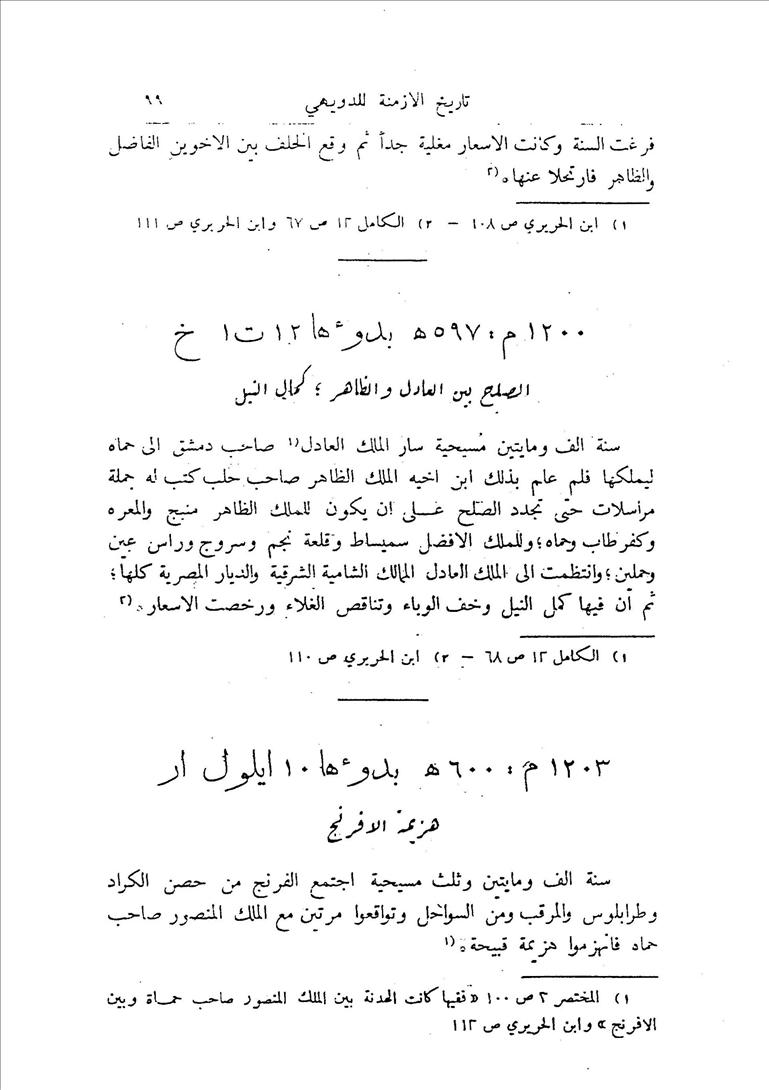 تاريخ الازمنة للدويهي ٩٩
فرغت السنة وكانت الاسعار مغلية جداً ثم وقع الخلف بين الاخوين الفاضل
والظاهر فارتحلا عنها.(٢
١) ابن الحريري ص ١٠٨ — ٢) الكامل ١٢ ص ٦٧ وابن الحريري ص ١١١
١٢٠٠م: ٥٩٧ه بدوءها ١٢ ت١ خ
الصلح بين العادل والظاهر؛ كمال النيل
سنة الف ومايتين مسيحية سار الملك العادل(١ صاحب دمشق الى حماه
ليملكها فلم علم بذلك ابن اخيه الملك الظاهر صاحب حلب كتب له جملة
مراسلات حتى تجدد الصلح عـلى ان يكون للملك الظاهر منبج والمعره
وكفرطاب وحماه؛ وللملك الافضل سميساط وقلعة نجم وسروج وراس عين
وحملين؛ وانتظمت الى الملك العادل المالك الشامية الشرقية والديار المصرية كلها؛
ثم أن فيها كمل النيل وخف الوباء وتناقص الغلاء ورخصت الاسعار.(٢
١) الكامل ١٢ ص ٦٨ — ٢) ابن الحريري ص ١١٠
١٢٠٣م: ٦٠٠ه بدوءها ١٠ ايلول ار
هزيمة الافرنج
سنة الف ومايتين وثلث مسيحية اجتمع الفرنج من حصن الكراد
وطرابلوس والمرقب ومن السواحل وتواقعوا مرتين مع الملك المنصور صاحب
حماه فانهزموا هزيمة قبيحة.(١
١) المختصر ٢ ص ١٠٠ «ففيها كانت الهدنة بين الملك المنصور صاحب حمـاة وبين
الافرنج» وابن الحريري ص ١١٢